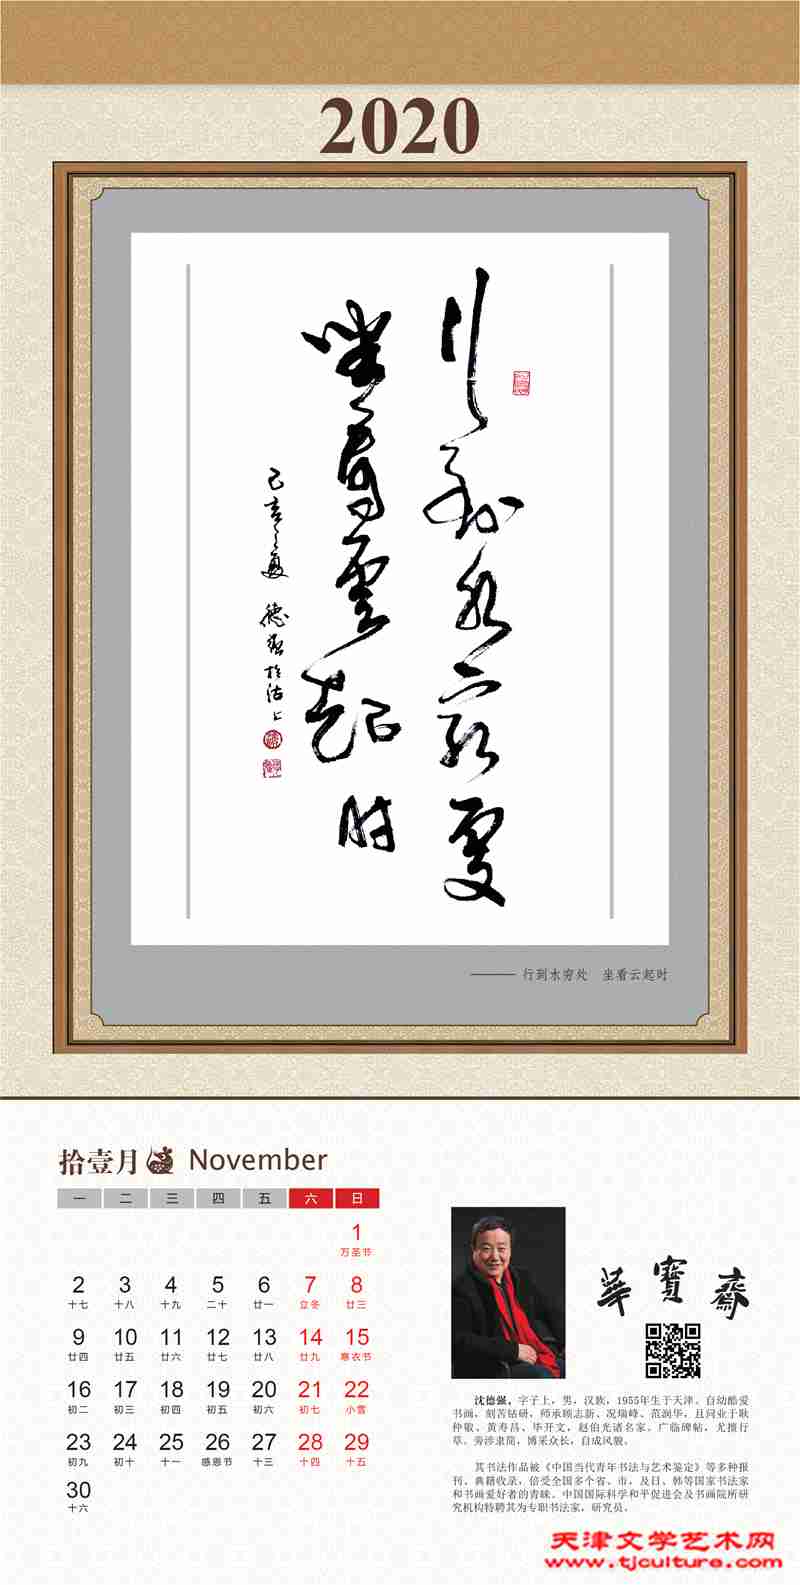 2020
行到水穷處
坐看雲起时
己亥之夏 德强於沽上
——— 行到水穷处 坐看云起时
拾壹月 November
一 二 三 四 五 六 日
1
万圣节
2 3 4 5 6 7 8
十七 十八 十九 二十 廿一 立冬 廿三
9 10 11 12 13 14 15
廿四 廿五 廿六 廿七 廿八 廿九 寒衣节
16 17 18 19 20 21 22
初二 初三 初四 初五 初六 初七 小雪
23 24 25 26 27 28 29
初九 初十 十一 感恩节 十三 十四 十五
30
十六
華寶齋
沈德强，字子上，男，汉族，1955年生于天津。自幼酷爱
书画，刻苦钻研，师承顾志新、况瑞峰、范润华，且问业于耿
仲敬、黄寿昌、毕开文，赵伯光诸名家。广临碑帖，尤擅行
草。旁涉隶简，博采众长，自成风貌。
其书法作品被《中国当代青年书法与艺术鉴定》等多种报
刊、典籍收录，倍受全国多个省、市，及日、韩等国家书法家
和书画爱好者的青睐。中国国际科学和平促进会及书画院所研
究机构特聘其为专职书法家，研究员。
天津文学艺术网
www.tjculture.com